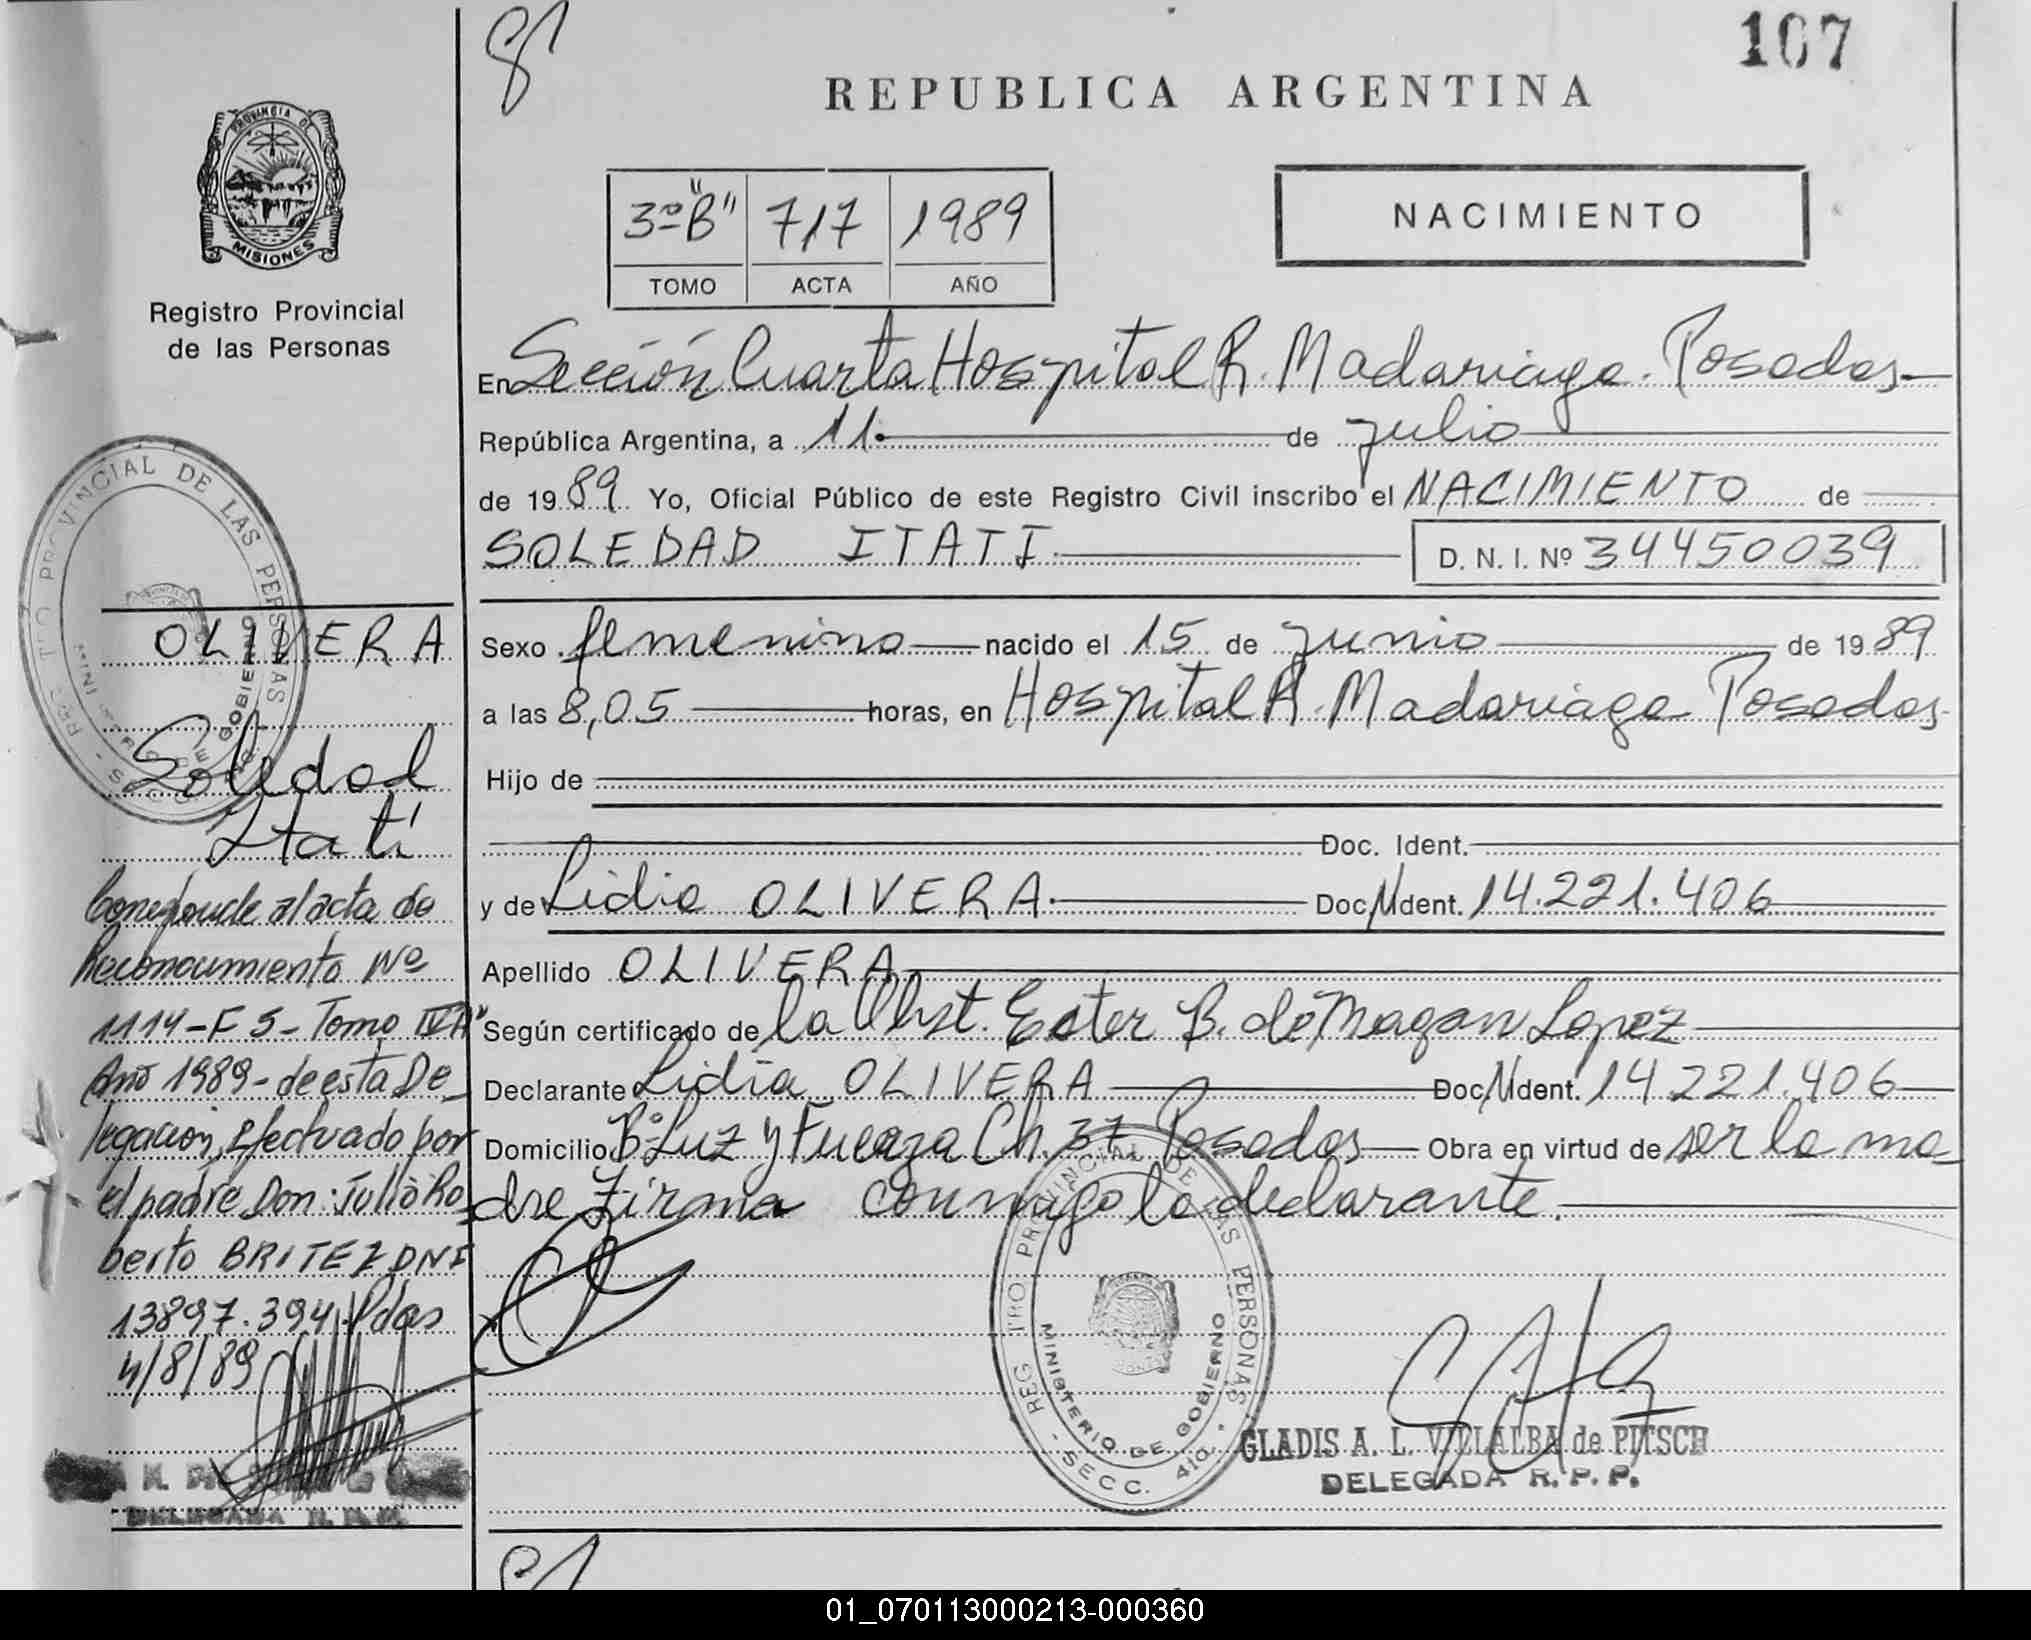 107
REPUBLICA ARGENTINA
PROVINCIA DE
MISIONES
Registro Provincial
de las Personas
3º "B" 717 1989
TOMO ACTA AÑO
NACIMIENTO
En Sección Cuarta Hospital R. Madariaga. Posadas
República Argentina, a 11. de julio
de 1989 Yo, Oficial Público de este Registro Civil inscribo el NACIMIENTO de
SOLEDAD ITATI. D. N. I. Nº 34450039
Sexo femenino nacido el 15 de junio de 1989
a las 8,05 horas, en Hospital R. Madariaga Posadas
Hijo de
Doc. Ident.
y de Lidia OLIVERA. Doc. Ident. 14.221.406
Apellido OLIVERA
Según certificado de la Obst. Ester B. de Magan Lopez
Declarante Lidia OLIVERA Doc. Ident. 14.221.406
Domicilio Bº Luz y Fuerza Ch. 37 Posadas Obra en virtud de ser la ma-
dre Firma conmigo la declarante.
REG. TRO PROVINCIAL DE LAS PERSONAS
MINISTERIO DE GOBIERNO
- SECC. 4ta. -
GLADIS A. L. VILLALBA de PITSCH
DELEGADA R. P. P.
REG. TRO PROVINCIAL DE LAS PERSONAS
OLIVERA
Soledad
Itatí
Corresponde al acta de
Reconocimiento Nº
1114-F 5- Tomo IV"A"
Año 1989- de esta De-
legación, Efectuado por
el padre Don: Julio Ro-
berto BRITEZ DNI
13897.394 Pdas
4/8/89
DELEGADA R. P. P.
01_070113000213-000360